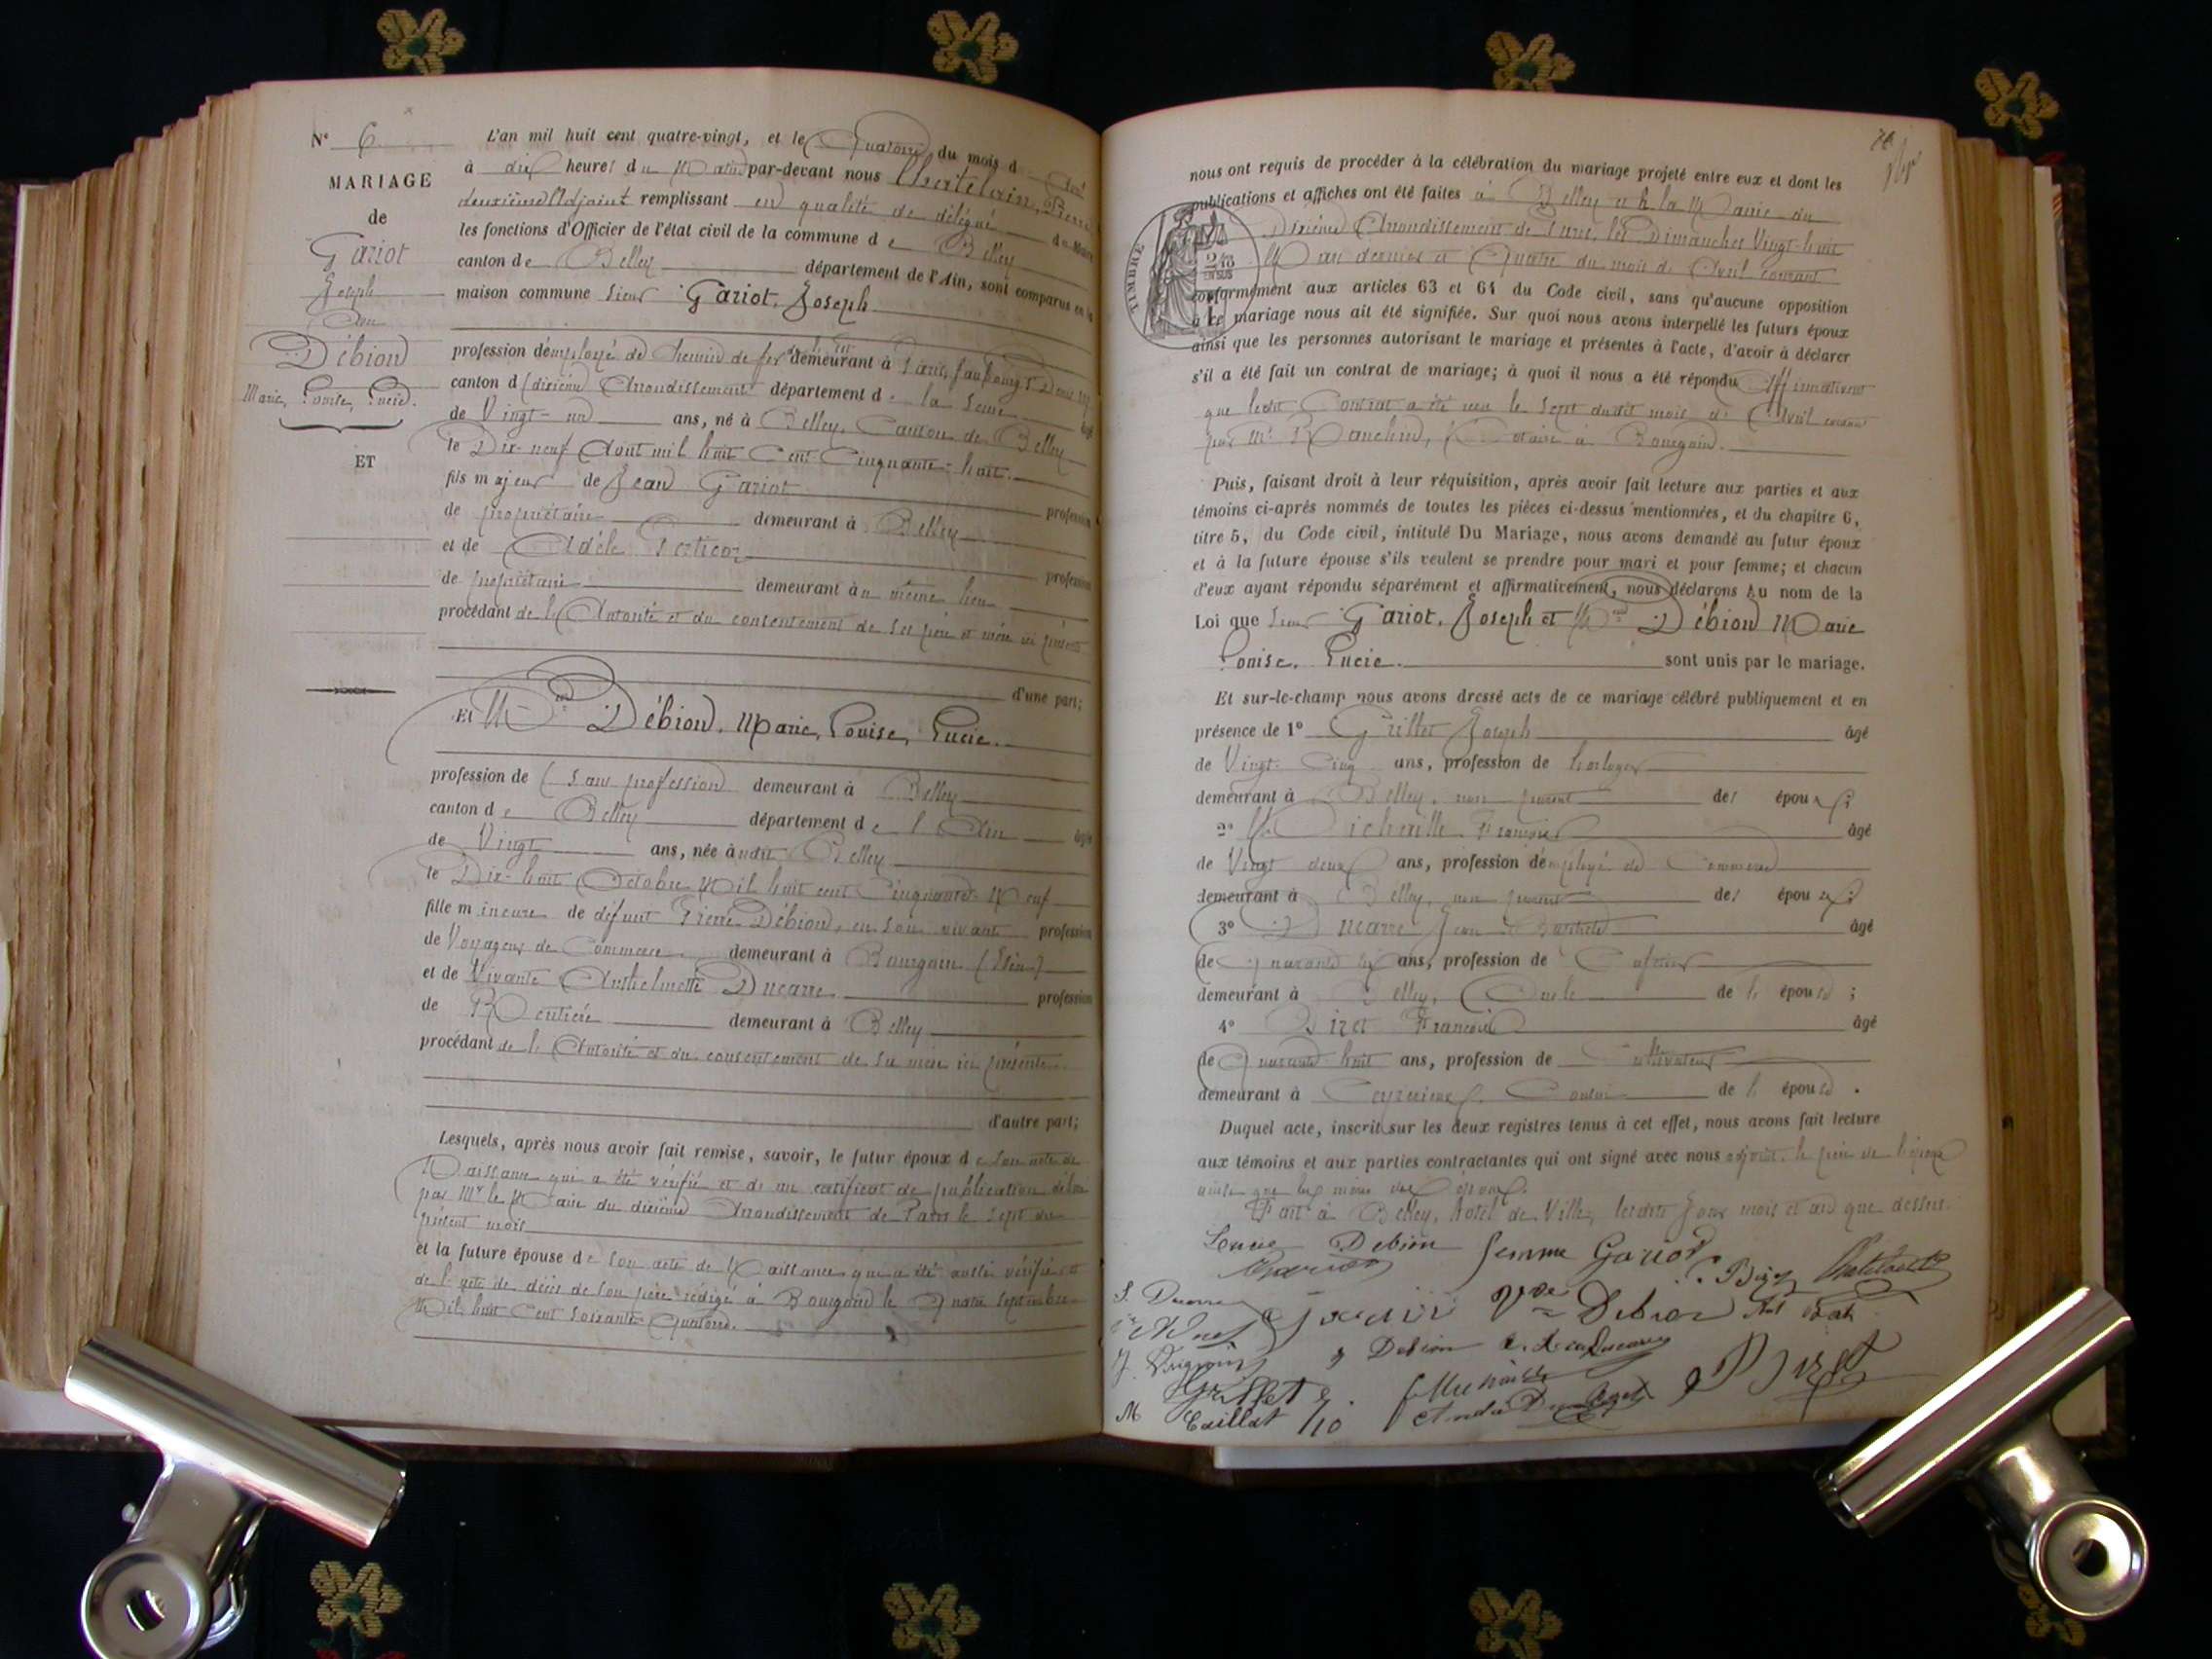 N° 6
MARIAGE
de
Gariot
Joseph
Débion
Marie, Louise, Lucie.
ET
L'an mil huit cent quatre-vingt, et le Quatorze du mois d
à dix heures du Matin par-devant nous Chatelain, Pierre
deuxième Adjoint remplissant en qualité de délégué du Maire
les fonctions d'Officier de l'état civil de la commune de Belley
canton de Belley département de l'Ain, sont comparus en la
maison commune Sieur Gariot, Joseph
profession d'employé de chemin de fer demeurant à Paris, faubourg St Denis
canton d (dixième Arrondissement département de la Seine âgé
de Vingt-un ans, né à Belley, Canton de Belley
le Dix-neuf Août mil huit Cent Cinquante-huit.
fils majeur de Jean Gariot profession
de propriétaire demeurant à Belley
et de Adèle profession
de propriétaire demeurant au même lieu
procédant de l'Autorité et du consentement de ses père et mère ici présents
d'une part;
Et Débion, Marie, Louise, Lucie.
profession de (sans profession demeurant à Belley
canton de Belley département de l'Ain âgée
de Vingt ans, née audit Belley
le Dix-huit Octobre Mil huit cent Cinquante-Neuf
fille mineure de défunt Pierre Débion, en son vivant profession
de Voyageur de Commerce demeurant à Bourgoin (Isère)
et de Vivante Anthelmette Ducarre profession
de Rentière demeurant à Belley
procédant de l'Autorité et du consentement de sa mère ici présente.
d'autre part;
Lesquels, après nous avoir fait remise, savoir, le futur époux de son acte de
Naissance qui a été vérifié et de un certificat de publication délivré
par Mr le Maire du dixième Arrondissement de Paris le sept du
présent mois
et la future épouse de son acte de Naissance qui a été aussi vérifié et
de l'acte de décès de son père rédigé à Bourgoin le Quatre Septembre
Mil huit Cent soixante Quatorze.
nous ont requis de procéder à la célébration du mariage projeté entre eux et dont les
publications et affiches ont été faites à Belley et à la Mairie du
Dixième Arrondissement de Paris, les Dimanches Vingt-huit
Mars dernier et Quatre du mois de Avril courant
TIMBRE
conformément aux articles 63 et 64 du Code civil, sans qu'aucune opposition
à ce mariage nous ait été signifiée. Sur quoi nous avons interpellé les futurs époux
ainsi que les personnes autorisant le mariage et présentes à l'acte, d'avoir à déclarer
s'il a été fait un contrat de mariage; à quoi il nous a été répondu Affirmativement
que ledit Contrat a été reçu le Sept dudit mois de Avril courant
par Me Notaire à Bourgoin.
Puis, faisant droit à leur réquisition, après avoir fait lecture aux parties et aux
témoins ci-après nommés de toutes les pièces ci-dessus mentionnées, et du chapitre 6,
titre 5, du Code civil, intitulé Du Mariage, nous avons demandé au futur époux
et à la future épouse s'ils veulent se prendre pour mari et pour femme; et chacun
d'eux ayant répondu séparément et affirmativement, nous déclarons au nom de la
Loi que Sieur Gariot, Joseph et Débion Marie
Louise, Lucie. sont unis par le mariage.
Et sur-le-champ nous avons dressé acte de ce mariage célébré publiquement et en
présence de 1° Grillet Joseph âgé
de Vingt-Cinq ans, profession de horloger
demeurant à Belley, non parent des époux;
2° François âgé
de Vingt deux ans, profession d'employé de Commerce
demeurant à Belley, non parent des époux;
3° Ducarre Jean Baptiste âgé
de Quarante six ans, profession de Cafetier
demeurant à Belley, Oncle de l'épouse;
4° Bizet François âgé
de Quarante-huit ans, profession de Cultivateur
demeurant à Ceyzérieux, Cousin de l'épouse.
Duquel acte, inscrit sur les deux registres tenus à cet effet, nous avons fait lecture
aux témoins et aux parties contractantes qui ont signé avec nous adjoint, le père de l'époux
ainsi que les mères des époux.
Fait à Belley, hôtel de Ville, lesdits jour mois et an que dessus.
Debion femme Gariot
Vve Debion
Debion
Grillet
Caillat
Bizet